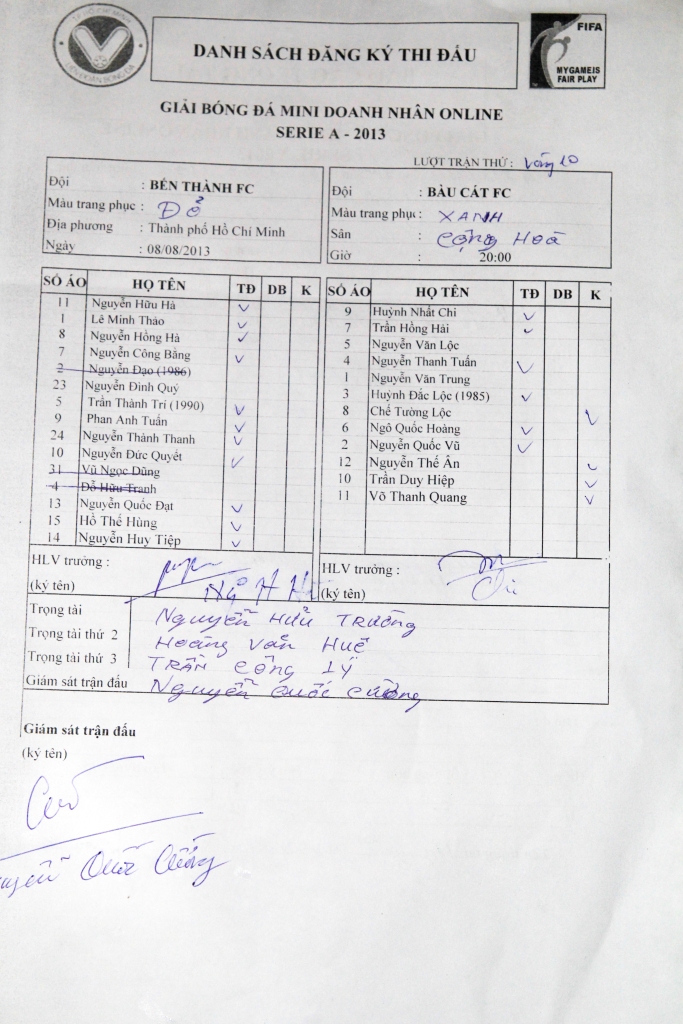 TP. HỒ CHÍ MINH
LIÊN ĐOÀN BÓNG ĐÁ
DANH SÁCH ĐĂNG KÝ THI ĐẤU
FIFA
MYGAMEIS
FAIR PLAY
GIẢI BÓNG ĐÁ MINI DOANH NHÂN ONLINE
SERIE A - 2013
LƯỢT TRẬN THỨ : Vòng 10
Đội : BẾN THÀNH FC
Màu trang phục : ĐỎ
Địa phương : Thành phố Hồ Chí Minh
Ngày : 08/08/2013
Đội : BÀU CÁT FC
Màu trang phục : XANH
Sân : CỘNG HOÀ
Giờ : 20:00
SỐ ÁO HỌ TÊN TĐ DB K
11 Nguyễn Hữu Hà ✓
1 Lê Minh Thảo ✓
8 Nguyễn Hồng Hà ✓
7 Nguyễn Công Bằng ✓
2 Nguyễn Đạo (1986)
23 Nguyễn Đình Quý
5 Trần Thành Trí (1990) ✓
9 Phan Anh Tuấn ✓
24 Nguyễn Thành Thanh ✓
10 Nguyễn Đức Quyết ✓
31 Vũ Ngọc Dũng
4 Đỗ Hữu Tranh
13 Nguyễn Quốc Đạt ✓
15 Hồ Thế Hùng ✓
14 Nguyễn Huy Tiệp ✓
SỐ ÁO HỌ TÊN TĐ DB K
9 Huỳnh Nhất Chi ✓
7 Trần Hồng Hải ✓
5 Nguyễn Văn Lộc
4 Nguyễn Thanh Tuấn ✓
1 Nguyễn Văn Trung
3 Huỳnh Đắc Lộc (1985) ✓
8 Chế Tường Lộc ✓
6 Ngô Quốc Hoàng ✓
2 Nguyễn Quốc Vũ ✓
12 Nguyễn Thế Ân ✓
10 Trần Duy Hiệp ✓
11 Võ Thanh Quang ✓
HLV trưởng :
(ký tên)
HLV trưởng :
(ký tên)
Trọng tài NGUYỄN HỮU TRƯỜNG
Trọng tài thứ 2 HOÀNG VĂN HUẾ
Trọng tài thứ 3 TRẦN CÔNG LÝ
Giám sát trận đấu NGUYỄN QUỐC CƯỜNG
Giám sát trận đấu
(ký tên)